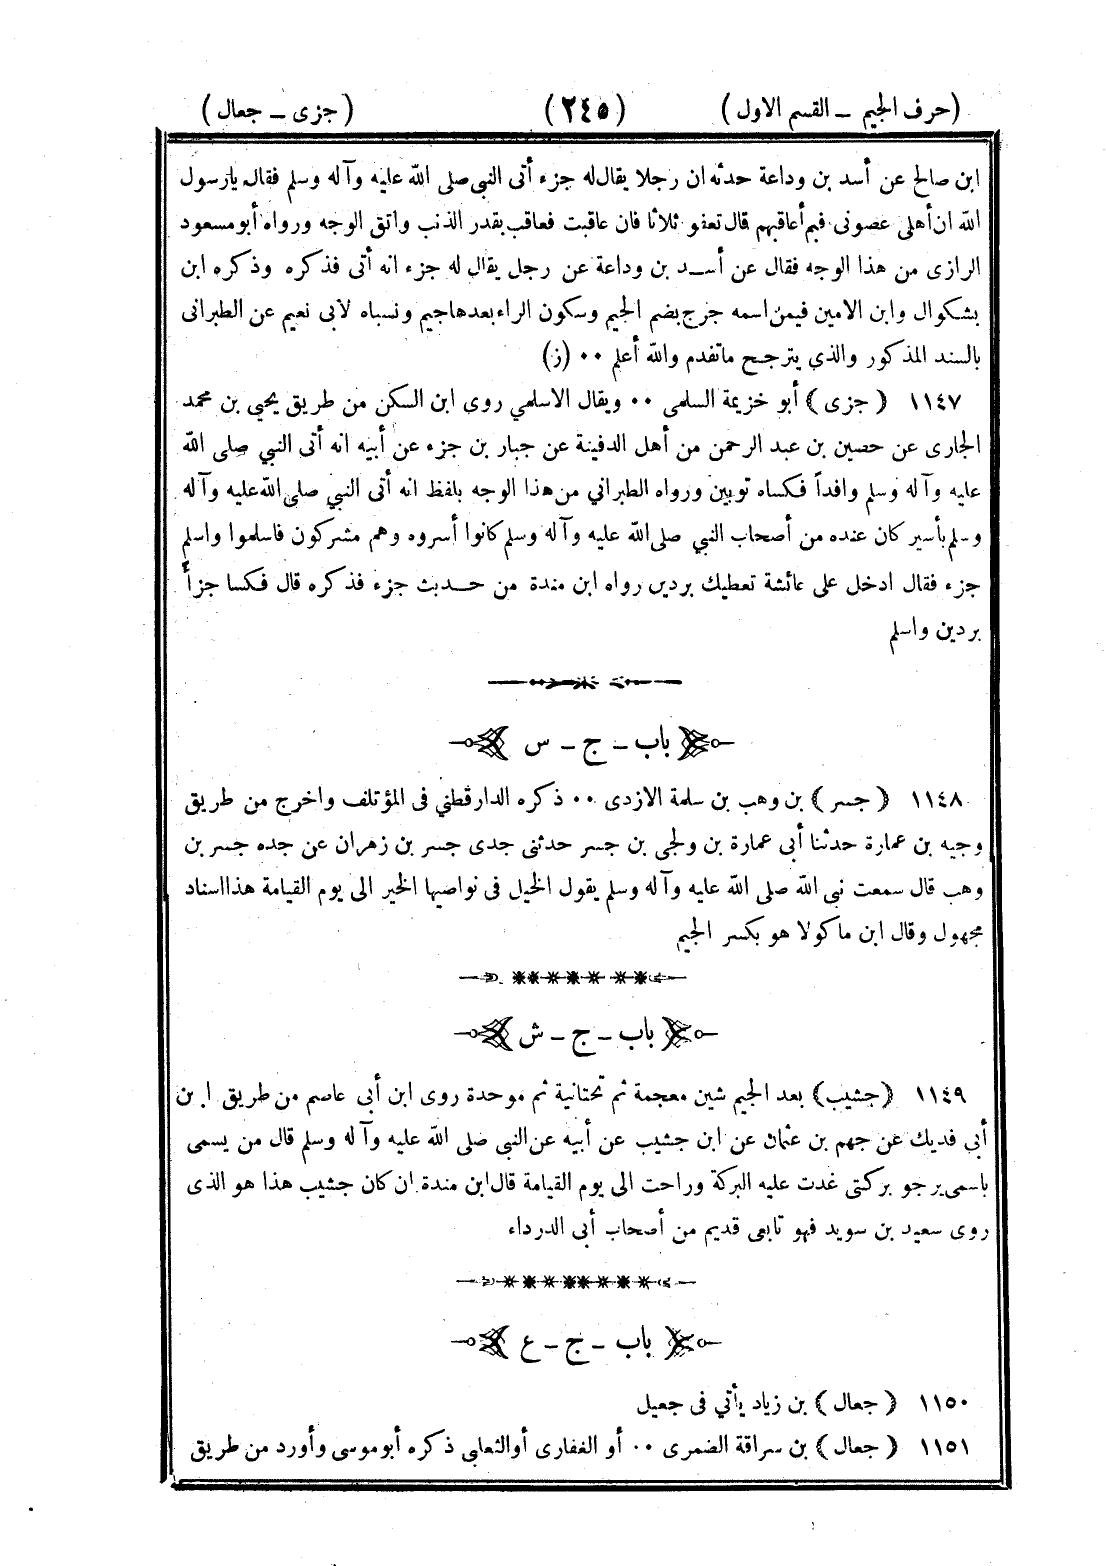 (حرف الجيم – القسم الاول) (٢٤٥) (جزى – جعال)
ابن صالح عن أسد بن وداعة حدثه ان رجلا يقال له جزء أتى النبي صلى الله عليه وآله وسلم فقال يارسول
الله ان أهلى عصونى فبم أعاقبهم قال تعفو ثلاثا فان عاقبت فعاقب بقدر الذنب واتق الوجه ورواه أبو مسعود
الرازى من هذا الوجه فقال عن أسد بن وداعة عن رجل يقال له جزء انه أتى فذكره وذكره ابن
بشكوال وابن الامين فيمن اسمه جرج بضم الجيم وسكون الراء بعدها جيم ونسباه لابى نعيم عن الطبرانى
بالسند المذكور والذي يترجح ماتقدم والله أعلم ٠٠ (ز)
١١٤٧ (جزى) أبو خزيمة السلمى ٠٠ ويقال الاسلمي روى ابن السكن من طريق يحيى بن محمد
الجارى عن حصين بن عبد الرحمن من أهل الدفينة عن جبار بن جزء عن أبيه انه أتى النبي صلى الله
عليه وآله وسلم وافداً فكساه ثوبين ورواه الطبراني من هذا الوجه بلفظ انه أتى النبي صلى الله عليه وآله
وسلم بأسير كان عنده من أصحاب النبي صلى الله عليه وآله وسلم كانوا أسروه وهم مشركون فاسلموا واسلم
جزء فقال ادخل على عائشة تعطيك بردين رواه ابن مندة من حديث جزء فذكره قال فكسا جزأ
بردين واسلم
باب – ج – س
١١٤٨ (جسر) بن وهب بن سلمة الازدى ٠٠ ذكره الدارقطني فى المؤتلف واخرج من طريق
وجيه بن عمارة حدثنا أبى عمارة بن ولجى بن جسر حدثنى جدى جسر بن زهران عن جده جسر بن
وهب قال سمعت نبى الله صلى الله عليه وآله وسلم يقول الخيل فى نواصيها الخير الى يوم القيامة هذا اسناد
مجهول وقال ابن ماكولا هو بكسر الجيم
باب – ج – ش
١١٤٩ (جشيب) بعد الجيم شين معجمة ثم تحتانية ثم موحدة روى ابن أبى عاصم من طريق ابن
أبى فديك عن جهم بن عثمان عن ابن جشيب عن أبيه عن النبى صلى الله عليه وآله وسلم قال من يسمى
باسمى يرجو بركتى غدت عليه البركة وراحت الى يوم القيامة قال ابن مندة ان كان جشيب هذا هو الذى
روى سعيد بن سويد فهو تابعى قديم من أصحاب أبى الدرداء
باب – ج – ع
١١٥٠ (جعال) بن زياد يأتي فى جعيل
١١٥١ (جعال) بن سراقة الضمرى ٠٠ أو الغفارى أوالثعلبى ذكره أبوموسى وأورد من طريق